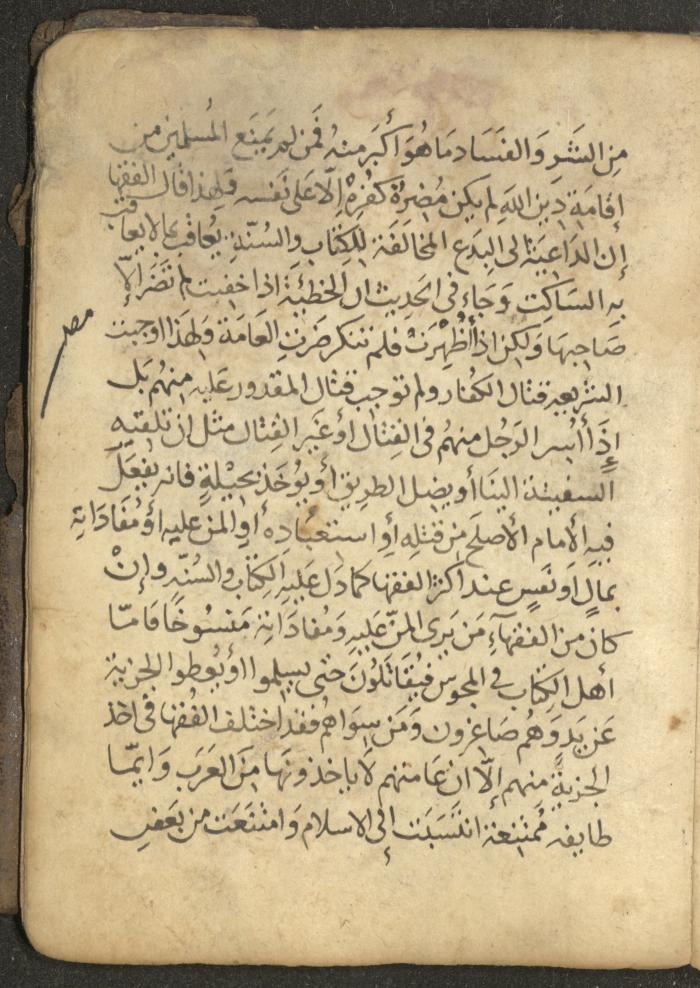 مِنَ الشَرِ وَالفَسَادِ مَا هُوَ أكبَر منهُ فَمن لم يَمنَع المُسلمين من
إقامَةِ دِينِ اللهِ لم يكن مُضِرةُ كفُرِهْ إلّا عَلى نَفسه وَلهذا قال الفقها
إن الدَاعِيَة الى البدَع المخالَفَة لِلكتاب والسُنّةِ يُعَاقب بما لا يعاقب
به السَاكِت وَجَاءَ في الحَديث ان الخطيئَةَ اذا خفيت لم تضر الّا
صَاحِبهَا وَلكِن اذا أُظهِرَتْ فلم تنكر ضرَتِ العَامَة وَلهَذا اوجبت
الشريعه قتال الكفار ولم توجب قتال المقدور عَليه منهُم بَل
إذَا أُسر الرَجُل منهُم في القِتال اوْ غَير القِتال مثل ان تلقيه
السفينة الينَا أو يضل الطريق أو يُوخَذ بحيْلةٍ فانه يفعَل
فيه الأمام الأصلَح من قتلِه أو استعبَادِه أو المن عليه اوْ مُفادَاته
بمالٍ اوْ نَفسٍ عند اكثر الفقها كما دَل عَليه الكتاب والسُنّه وإنْ
كان من الفقهآءِ مَن يَرى المنّ عَليهِ وَمُفادَاتهُ مَنسُوخًا فامّا
أهل الكِتاب والمجوس فيُقَاتَلُونَ حتى يسلِموا أو يُعطوا الجزية
عَن يَدٍ وَهُم صَاغرون وَمَن سِوَاهُم فقد اختلف الفُقها في اخذ
الجزيةِ منهم إلّا ان عَامتهم لا ياخذونَها مِنَ العَرَب وَايّما
طايفه مُمتنعة انتَسَبَت إلى الاسلام وَامتنَعَت من بَعَضِ